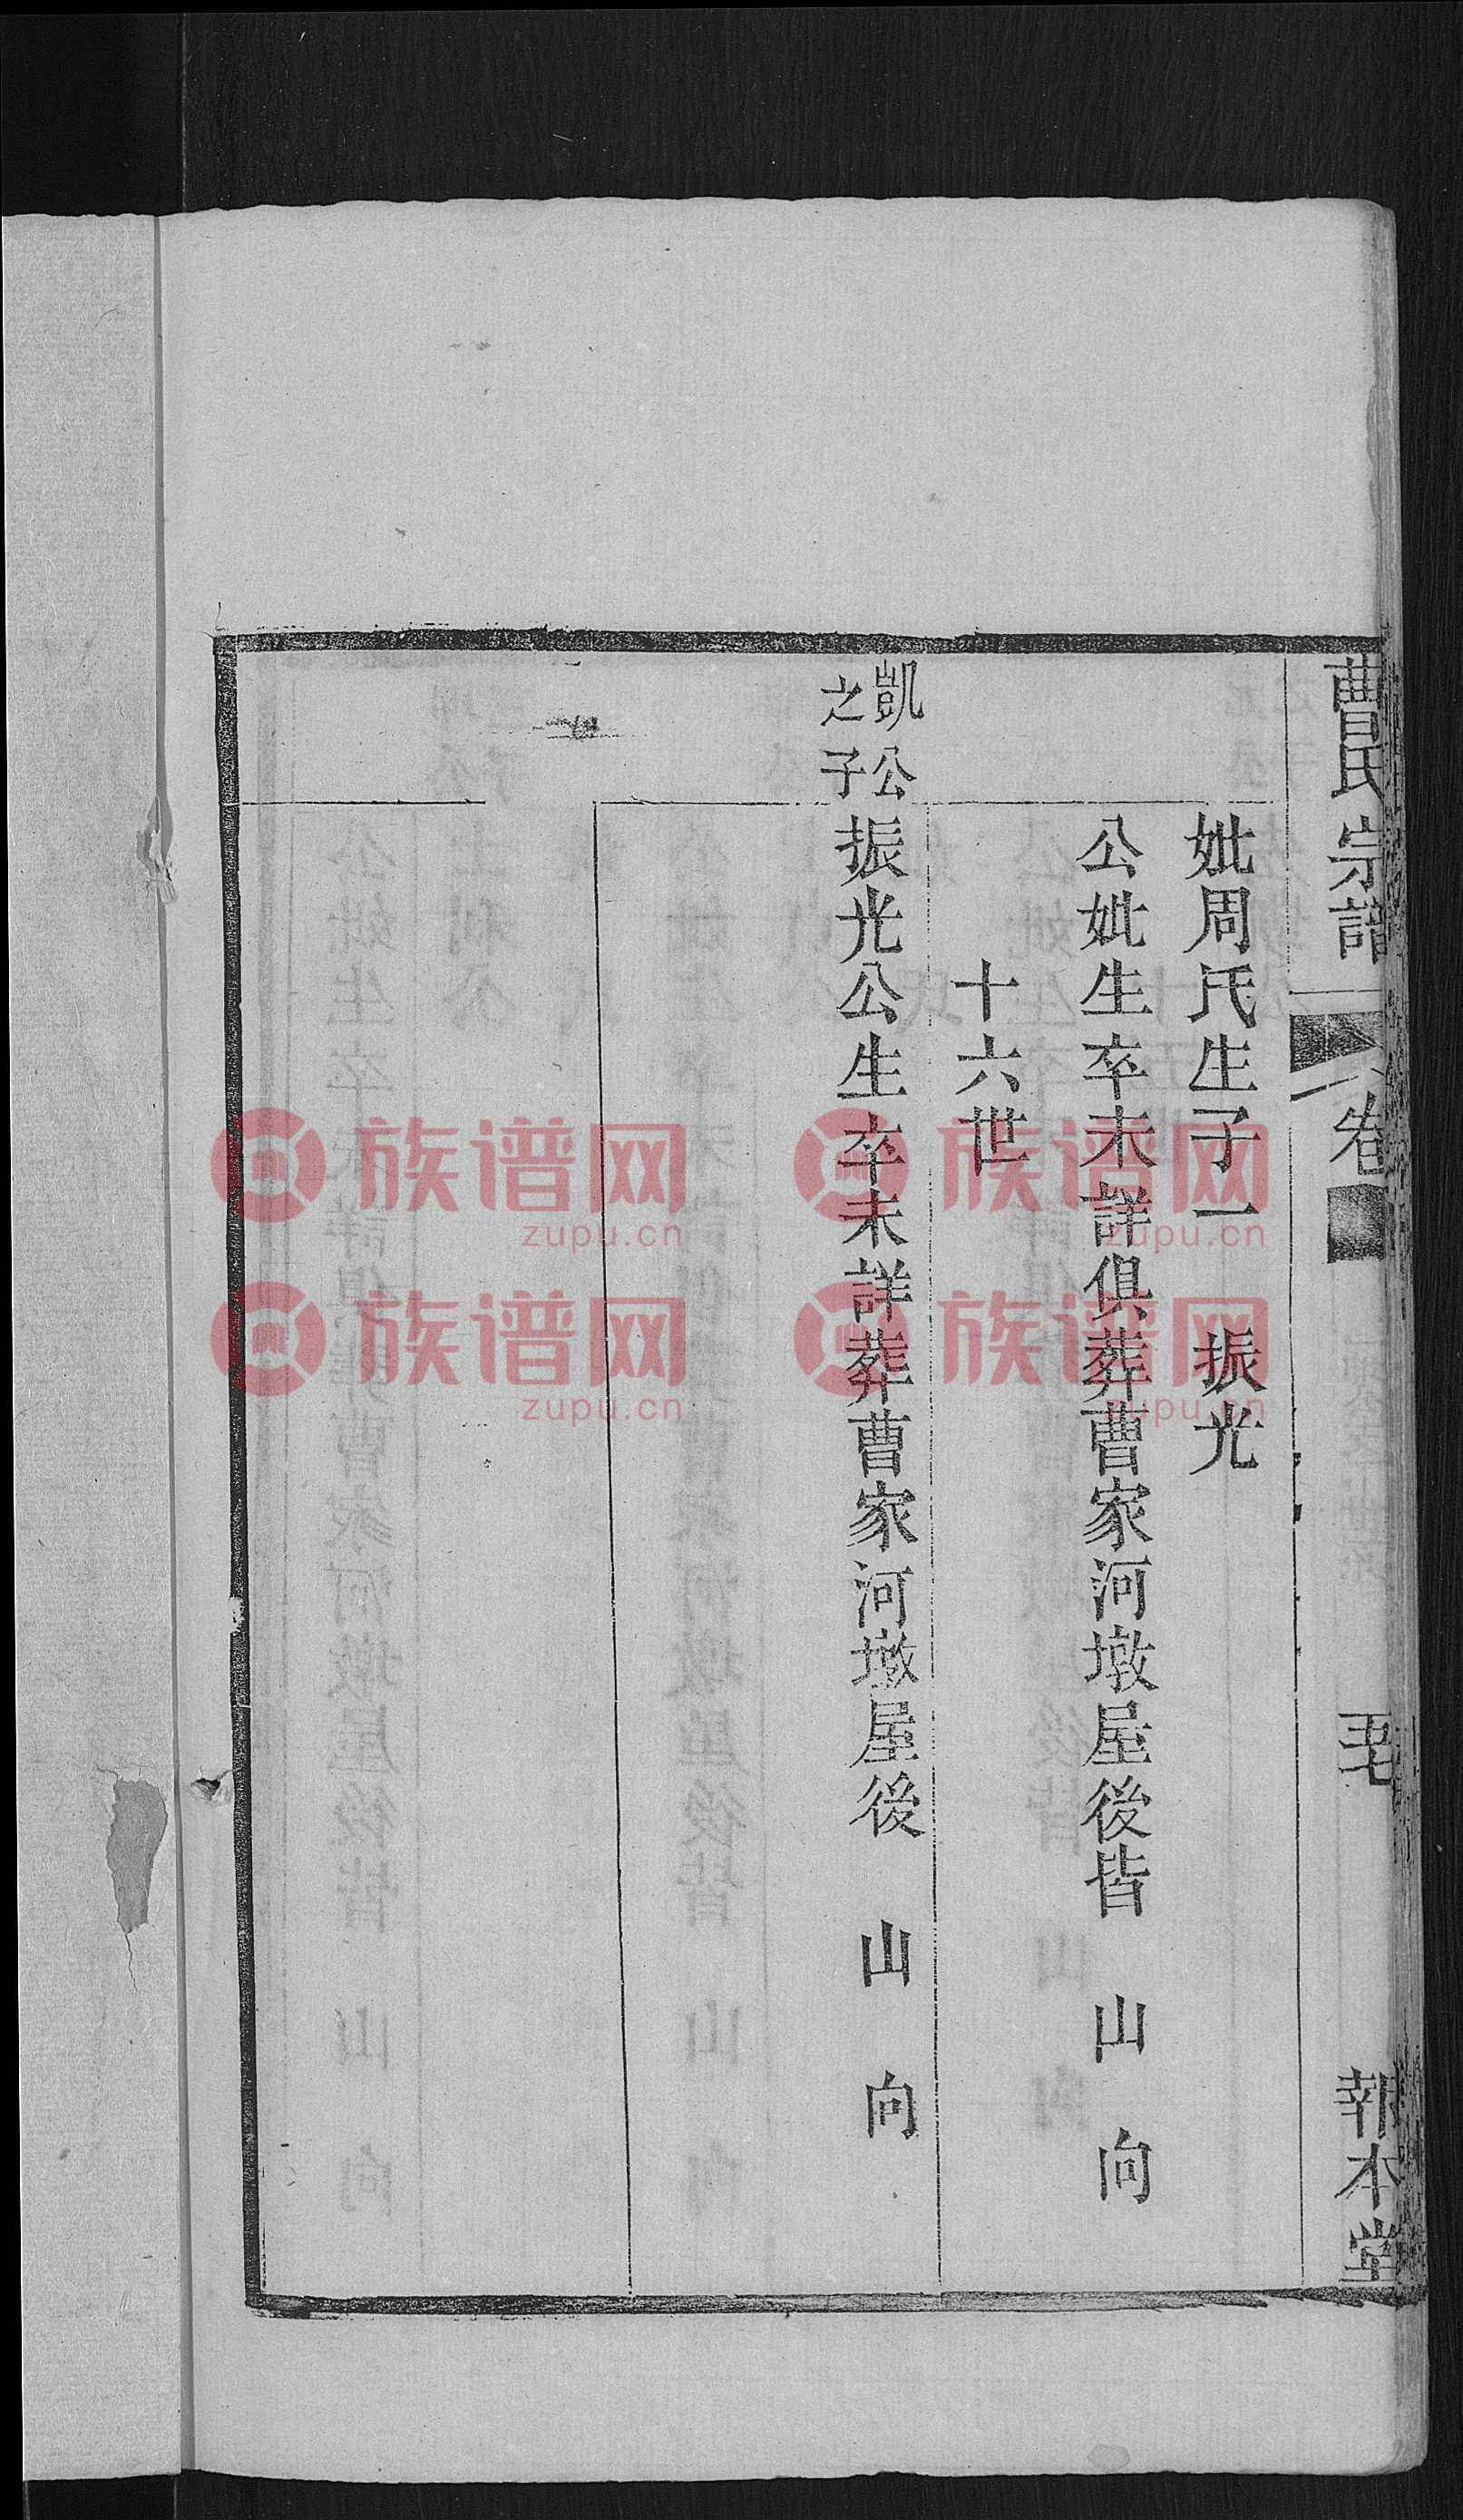 曹氏宗譜
卷
報本堂
妣周氏生子一　振光
公妣生卒未詳俱葬曹家河墩屋後皆　山　向
十六世
凱公
之子
振光公生卒未詳葬曹家河墩屋後　山　向
族谱网
zupu.cn
族谱网
zupu.cn
族谱网
zupu.cn
族谱网
zupu.cn